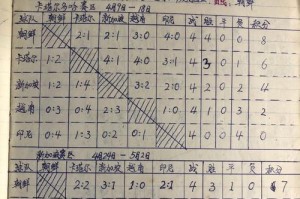 卡塔尔多哈赛区 4月9日-18日 朝鲜
球队 朝鲜 卡塔尔 新加坡 越南 印尼 战 胜 平 负 积分
朝鲜 2:1 2:1 3:0 4:0 4 4 0 0 8
卡塔尔 1:2 4:1 4:0 3:1 4 3 0 1 6
新加坡 1:2 1:4 3:2 2:0 4 2 0 2 4
越南 0:3 0:4 2:3 1:0 4 1 0 3 2
印尼 0:4 1:3 0:2 0:1 4 0 0 4 0
新加坡赛区 4月24日-5月2日
球队 朝鲜 卡塔尔 新加坡 越南 印尼 战 胜 平 负 积分
朝鲜 2:2 3:1 1:0 2:1 4 3 1 0 7